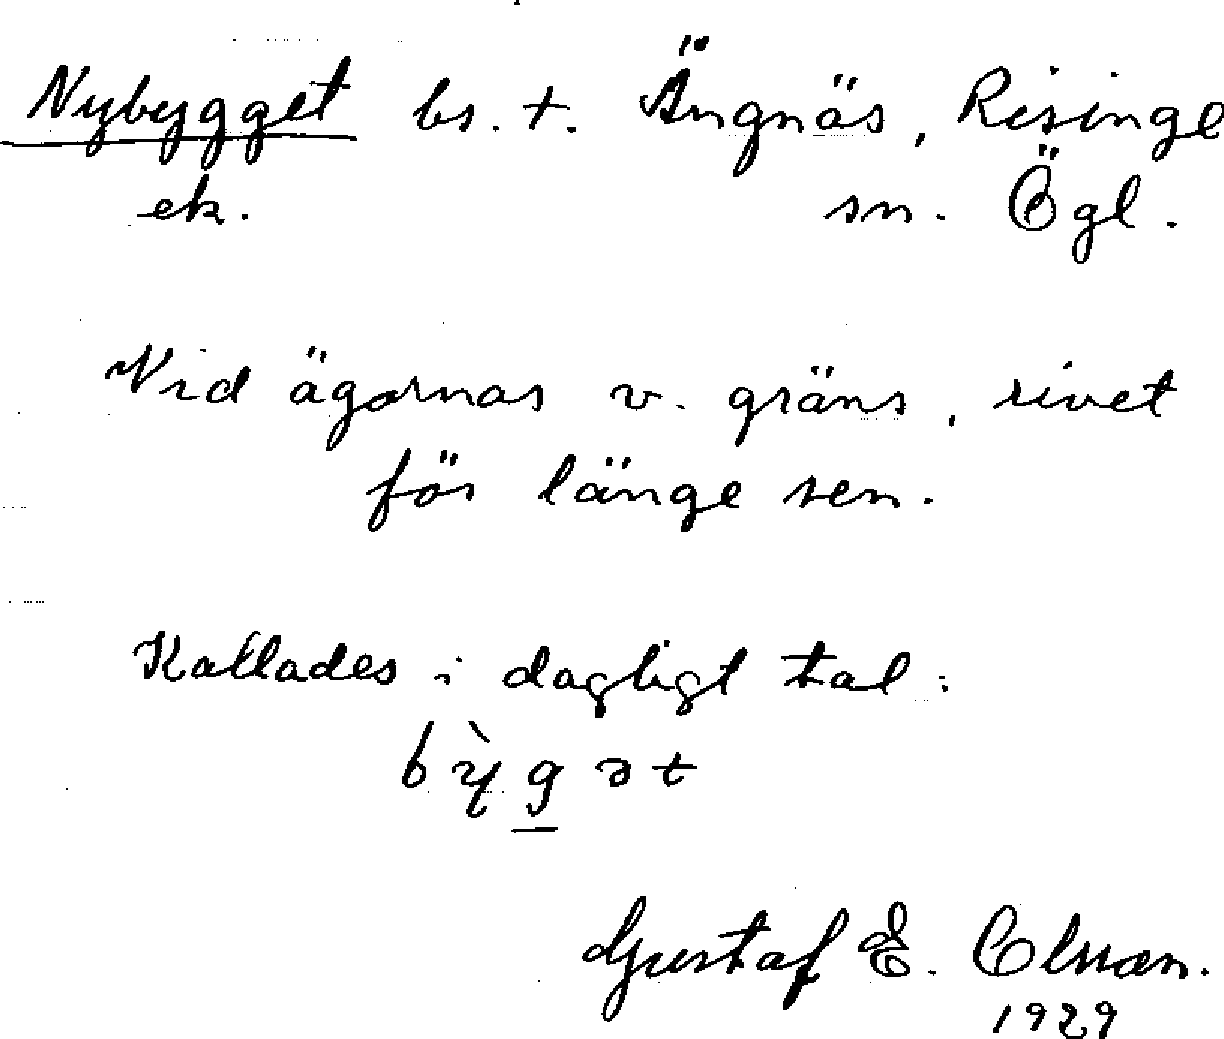 Nybygget bs. t. Ängnäs, Risinge
ek. sn. Ögl.
Vid ägornas v. gräns, rivet
för länge sen.
Kallades i dagligt tal:
bỳgət
Gustaf E.
1929